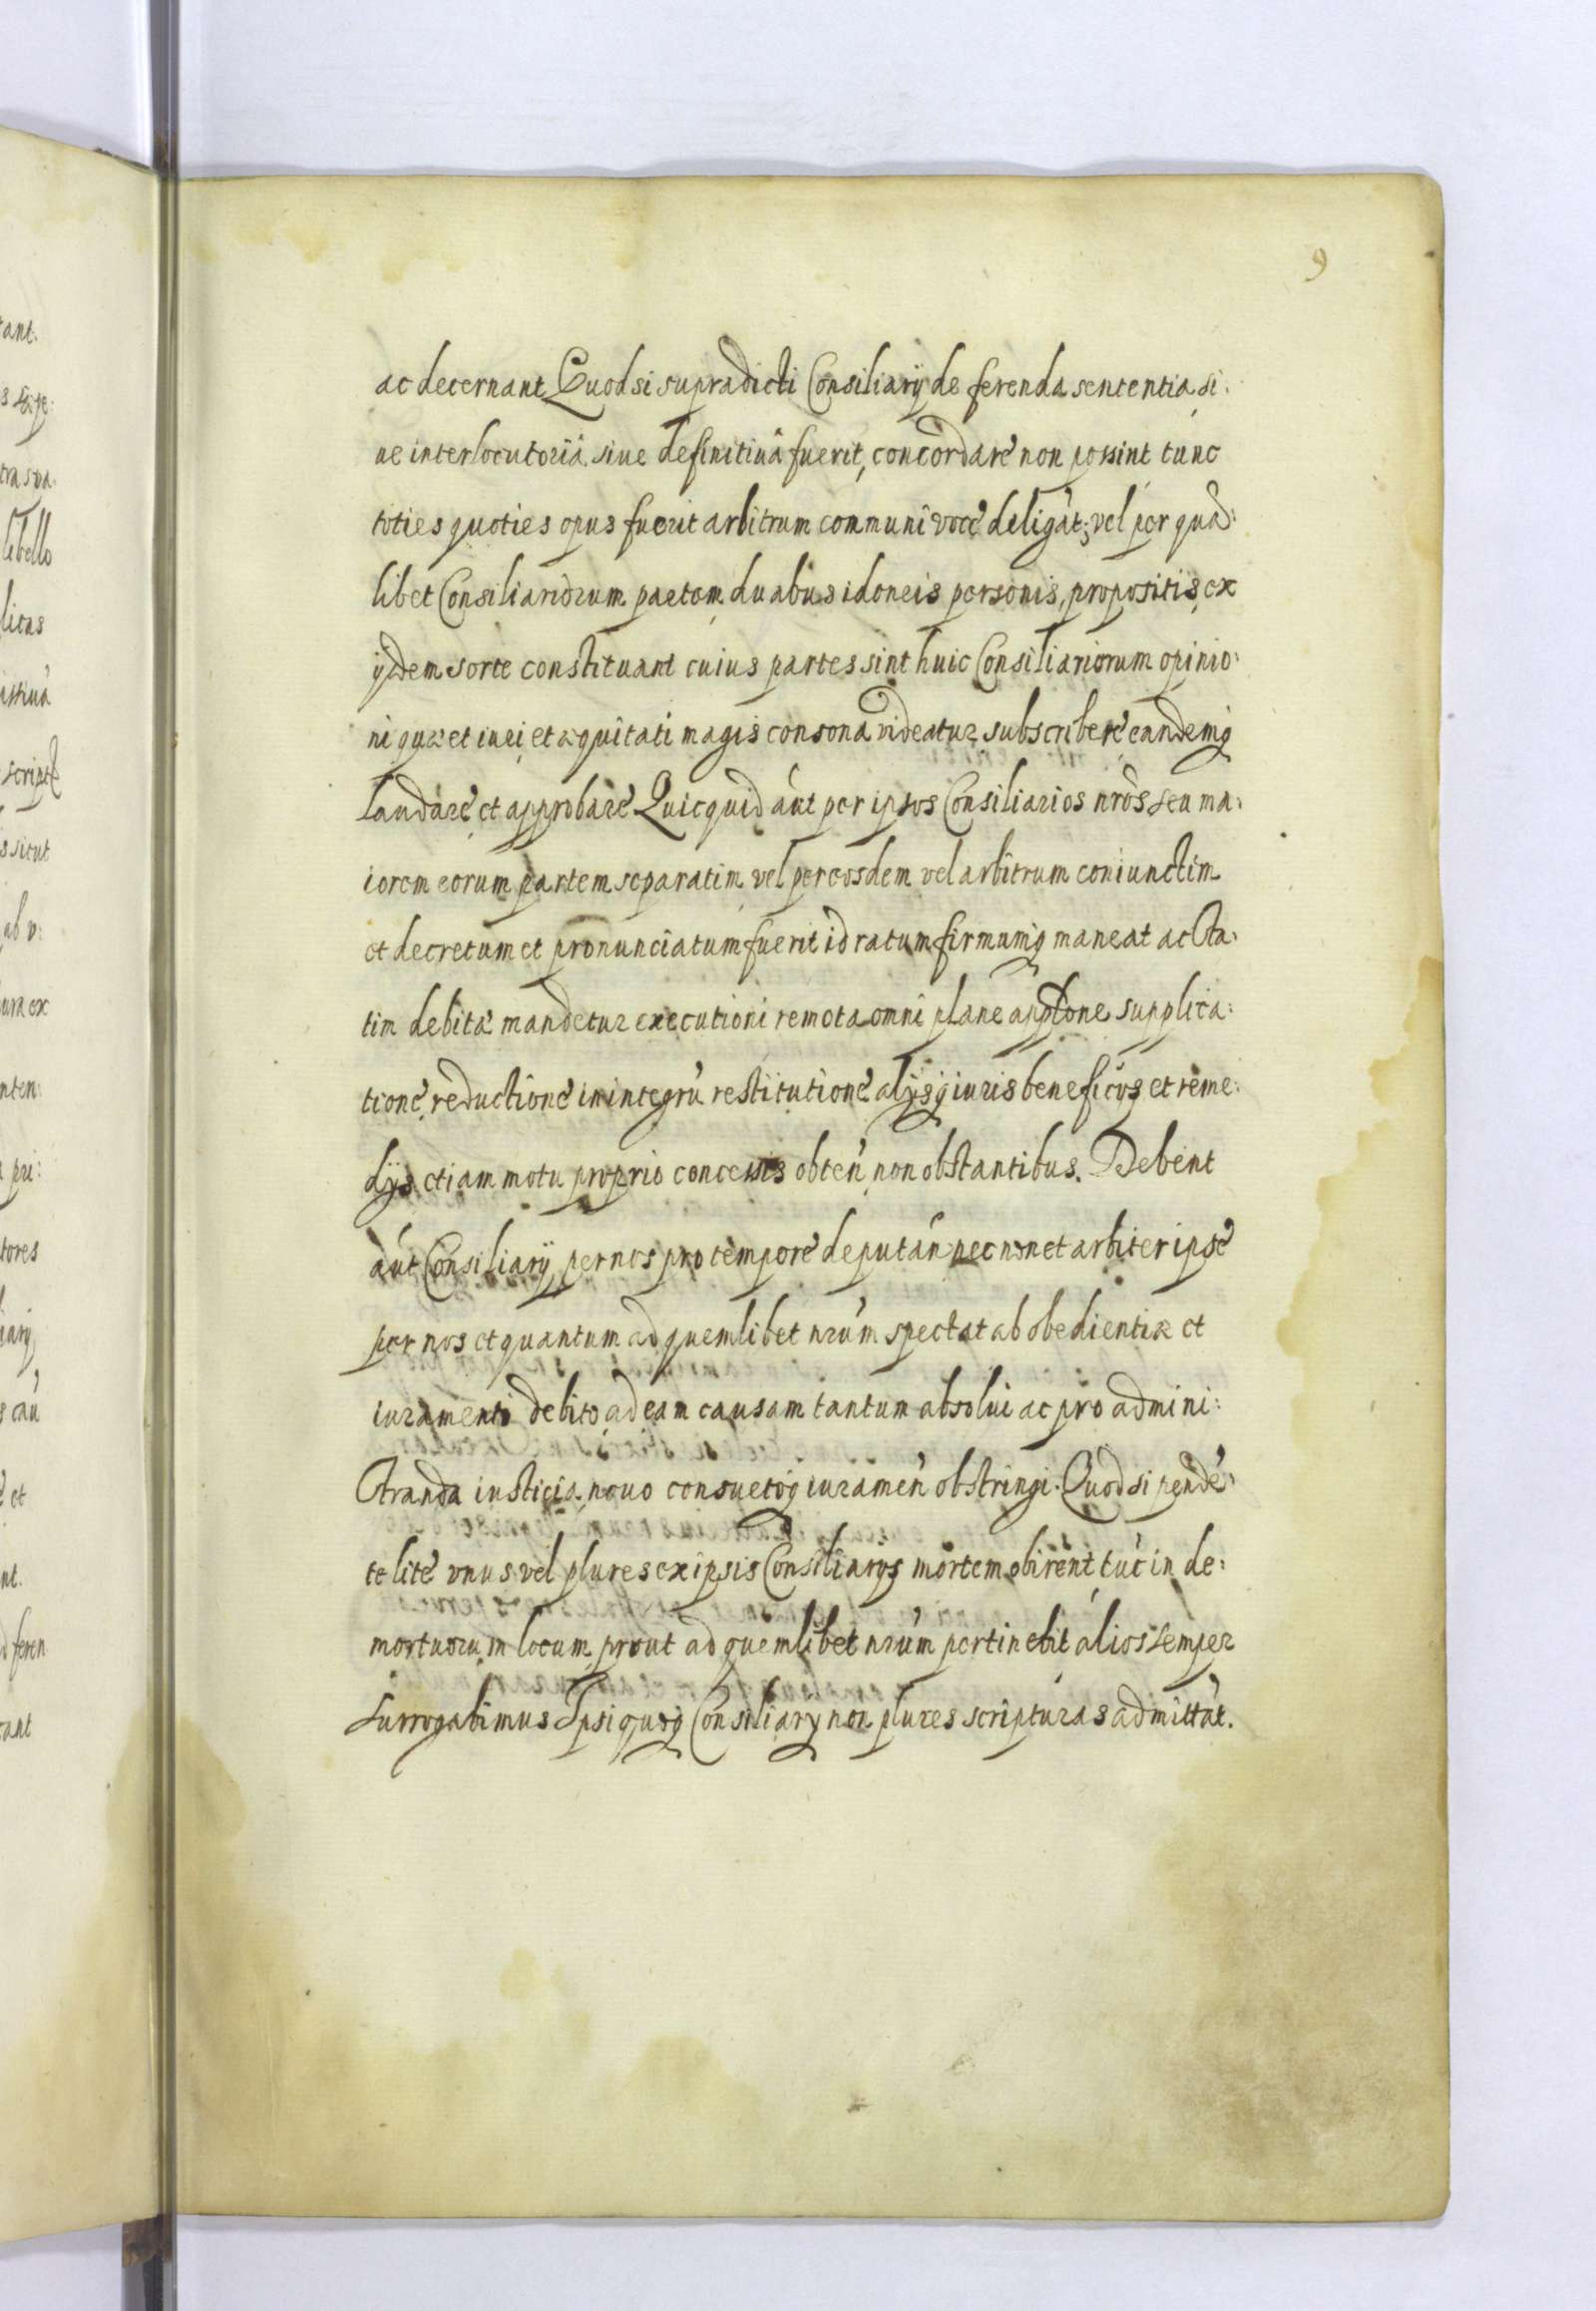 9
ac decernant Quod si supradicti Consiliarij de ferenda sententia si:
ue interlocutoriâ siue definitiuâ fuerit, concordare non possint tunc
toties quoties opus fuerit arbitrum communi voce deligãt; vel per quã:
libet Consiliariorum partem duabus idoneis personis, propositis, ex
ijsdem sorte constituant cuius partes sint huic Consiliariorum opinio:
ni quæ et iuri et æquitati magis consona videatur subscribere eandemq́
laudare et approbare Quicquid aũt per ipsos Consiliarios nr̃os seu ma:
iorem eorum partem separatim vel per eosdem vel arbitrum coniunctim
et decretum et pronunciatum fuerit id ratum firmumq́ maneat ac sta:
tim debitæ mandetur executioni remota omni plane app̃tone supplica:
tione, reductione in integrũ restitutione alijsq́ iuris beneficijs et reme:
dijs etiam motu proprio concessis obteñ non obstantibus. Debent
aũt Consiliarij per nos pro tempore deputañ necnon et arbiter ipse
per nos et quantum ad quemlibet nrũm spectat ab obedientiæ et
iuramenti debito ad eam causam tantum absolui ac pro admini:
stranda iusticia nouo consuetoq́ iurameñ obstringi. Quod si pendẽ:
te lite vnus vel plures ex ipsis Consiliarijs mortem obirent tũc in de:
mortuorum locum prout ad quemlibet nrũm pertinebit alios semper
surrogabimus Ipsi quoq́ Consiliarij non plures scripturas admittãt.
tant.
libello
licus
script
s sicut
ab v:
tores
et
nt.